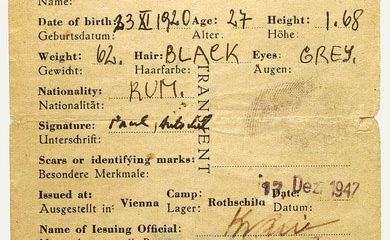 Name:
Date of birth: 23 XI 1920 Age: 27 Height: 1.68
Geburtsdatum: Alter: Höhe:
Weight: 62. Hair: BLACK Eyes: GREY.
Gewicht: Haarfarbe: Augen:
TRANSIENT
Nationality: RUM.
Nationalität:
Signature: Paul
Unterschrift:
Scars or identifying marks:
Besondere Merkmale:
Issued at: Vienna Camp: Rothschild Date: 17 Dez 1947
Ausgestellt in: Lager: Datum:
Name of Issuing Official: